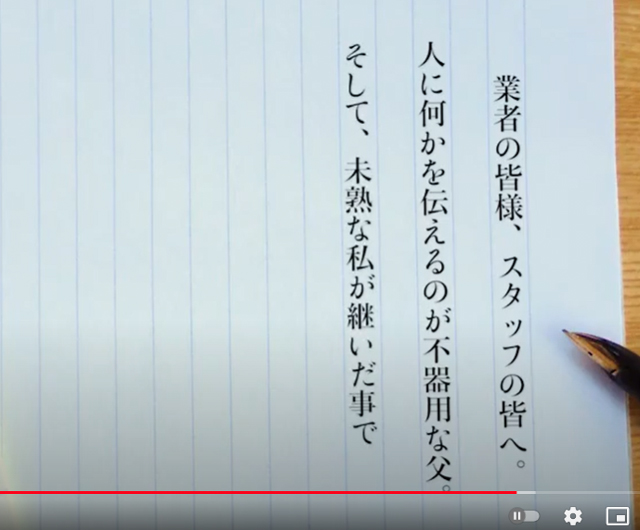 業者の皆様、スタッフの皆へ。
人に何かを伝えるのが不器用な父。
そして、未熟な私が継いだ事で